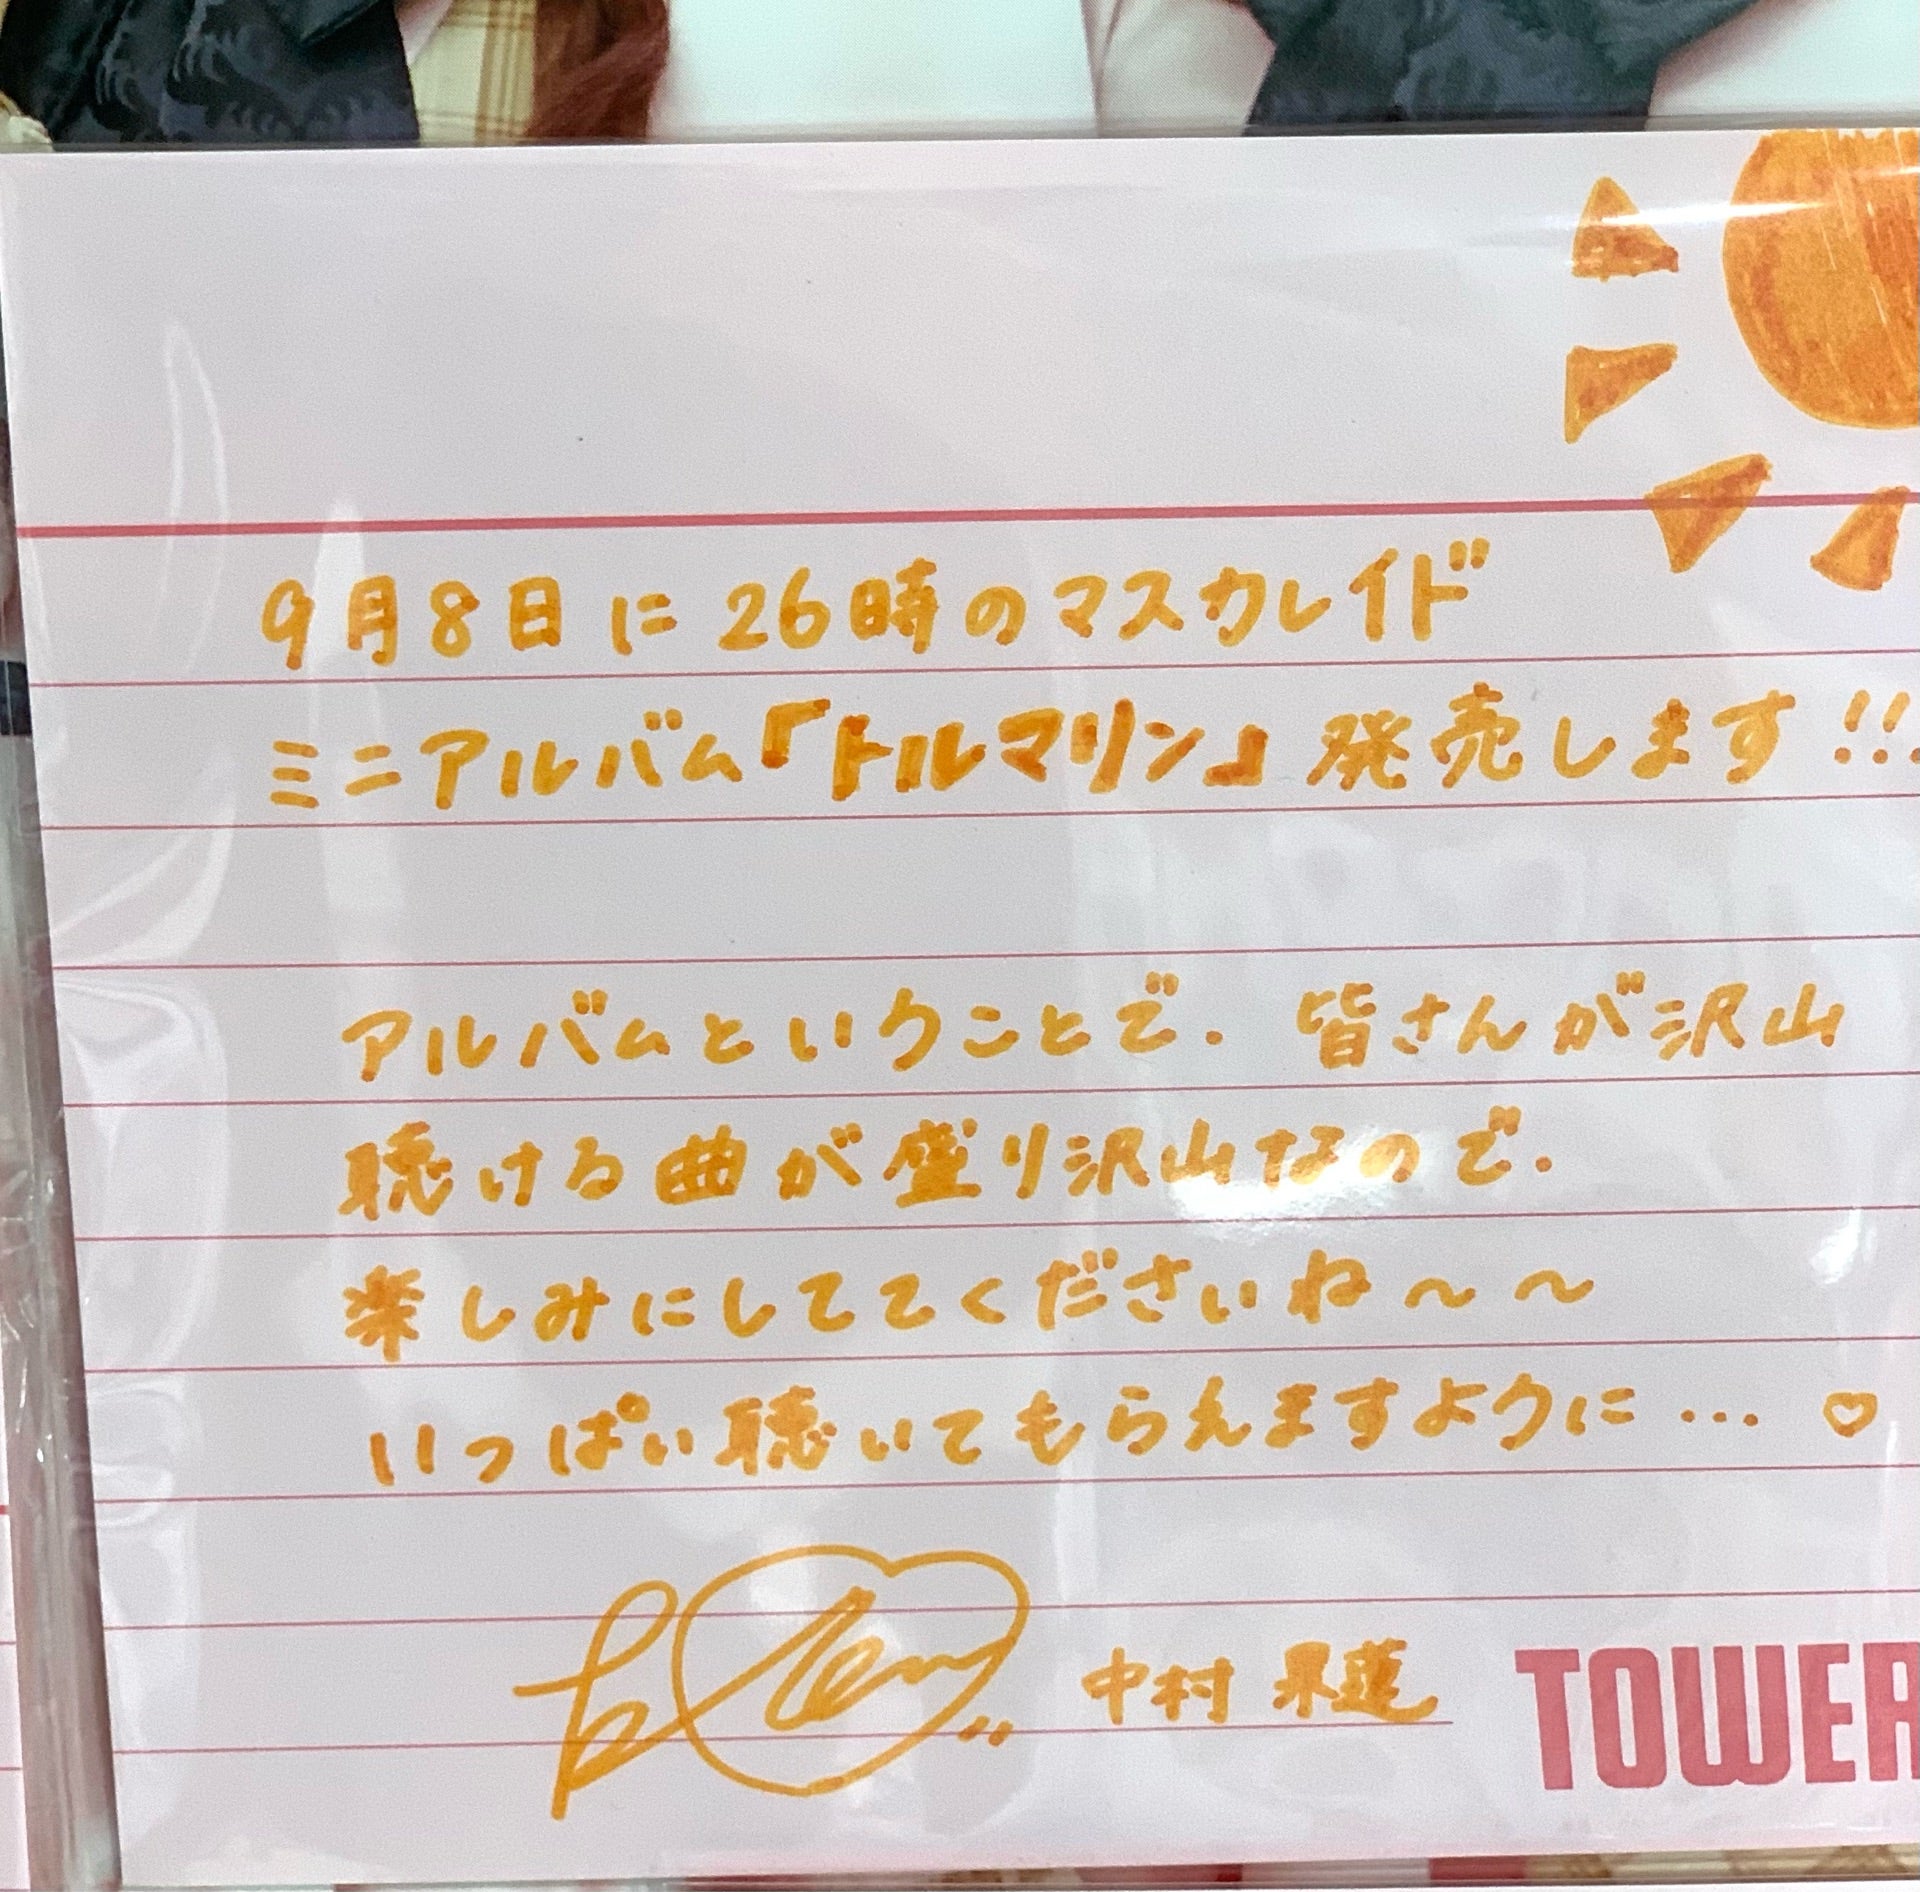 9月8日に26時のマスカレイド
ミニアルバム『トルマリン』発売します!!!
アルバムということで、皆さんが沢山
聴ける曲が盛り沢山なので、
楽しみにしててくださいね〜〜
いっぱい聴いてもらえますように…♡
中村 果蓮
TOWER